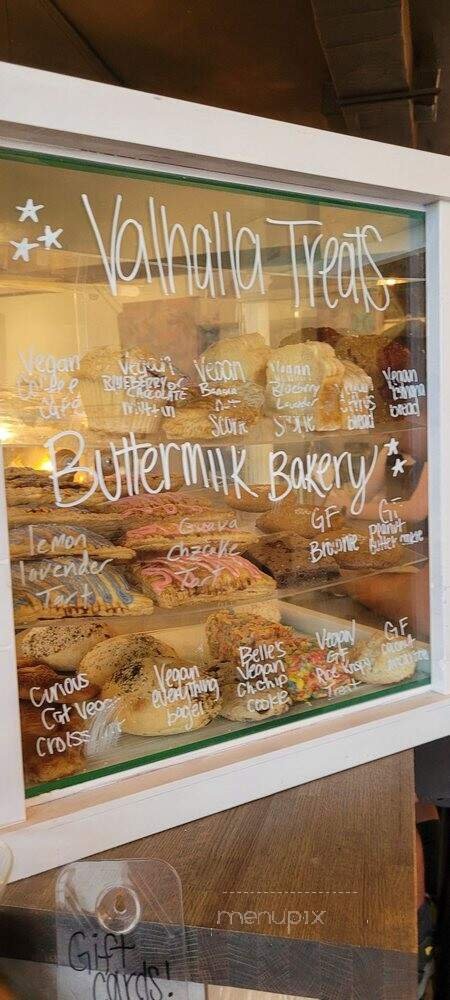 Valhalla Treats
Vegan
Coffee
Cake
Vegan
BLUEBERRY or
CHOCOLATE
Muffin
Vegan
Banana
Nut
Scone
Vegan
Blueberry
Lavender
Scone
bread
Vegan
Banana
bread
Buttermilk Bakery
lemon
lavender
Tart
Guava
Chzcake
Tart
GF
Brownie
GF
peanut
Butter
Curious
Cat Vegan
Croissant
Vegan
everything
bagel
Belle's
Vegan
Ch.chip
cookie
Vegan
GF
Rice Krispy
Treat
GF
coconut
macaroon
menupix
Gift
cards!